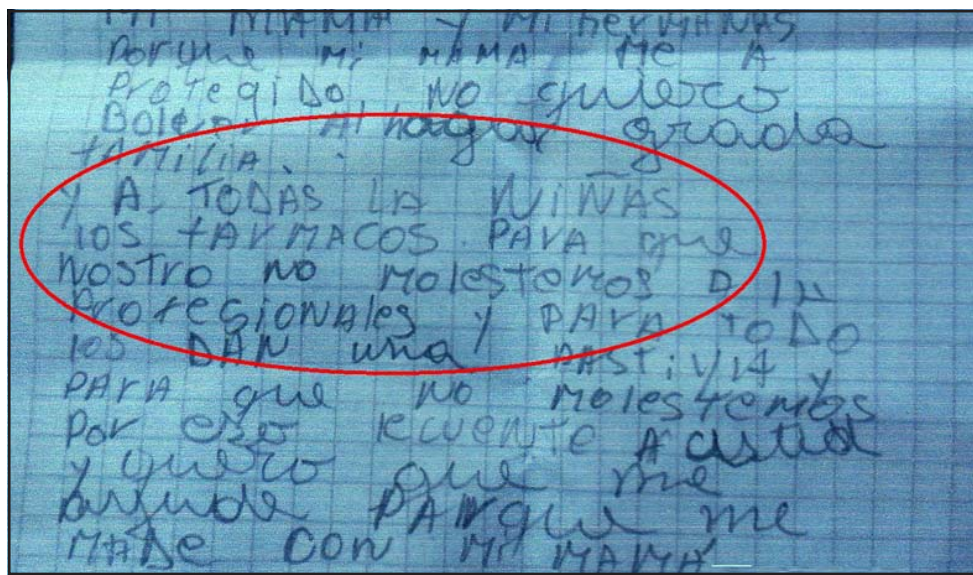 Mi MAMA y Mi herMANAS
Porque Mi MAMA Me A
ProtegiDo No quiero
Bolver Al hogar grada
fAMiliA.
y A. TODAS LA NiÑAS
los fArMACOS. PArA que
Nostro No MolesteMos
ProfesioNAles y PArA toDo
los DAN una PAStillA y
PArA que No MolesteMos
Por eso recuente A usted
y quero que me
ayude PArAque me
MADe CON Mi MAMA